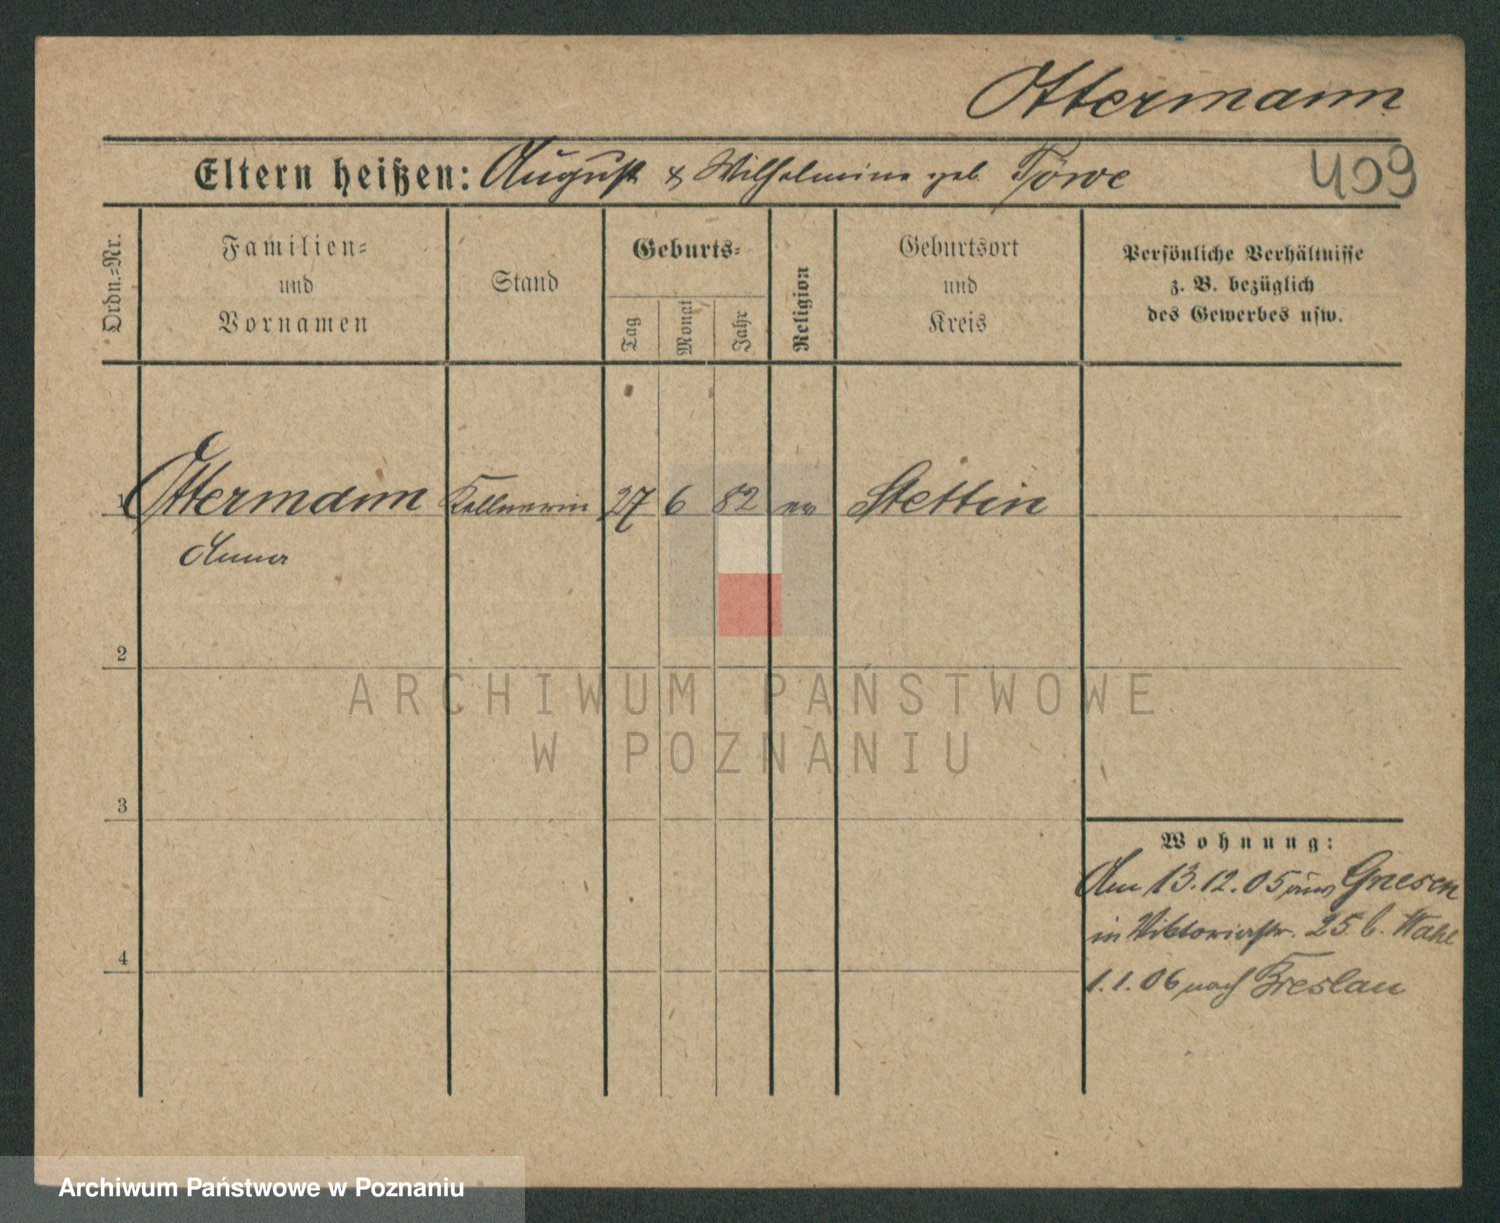 Ottermann
Eltern heißen: August & Wilhelmine geb. Töwe
409
Ordn.-Nr.
Familien-
und
Vornamen
Stand
Geburts-
Tag
Monat
Jahr
Religion
Geburtsort
und
Kreis
Persönliche Verhältnisse
z. B. bezüglich
des Gewerbes usw.
1 Ottermann Kellnerin 27 6 82 ev Stettin
Anna
2
ARCHIWUM PAŃSTWOWE
W POZNANIU
3
Wohnung:
Am 13.12.05 aus Gnesen
in Viktoriastr. 25 b. Wahl
4
1.1.06 nach Breslau
Archiwum Państwowe w Poznaniu